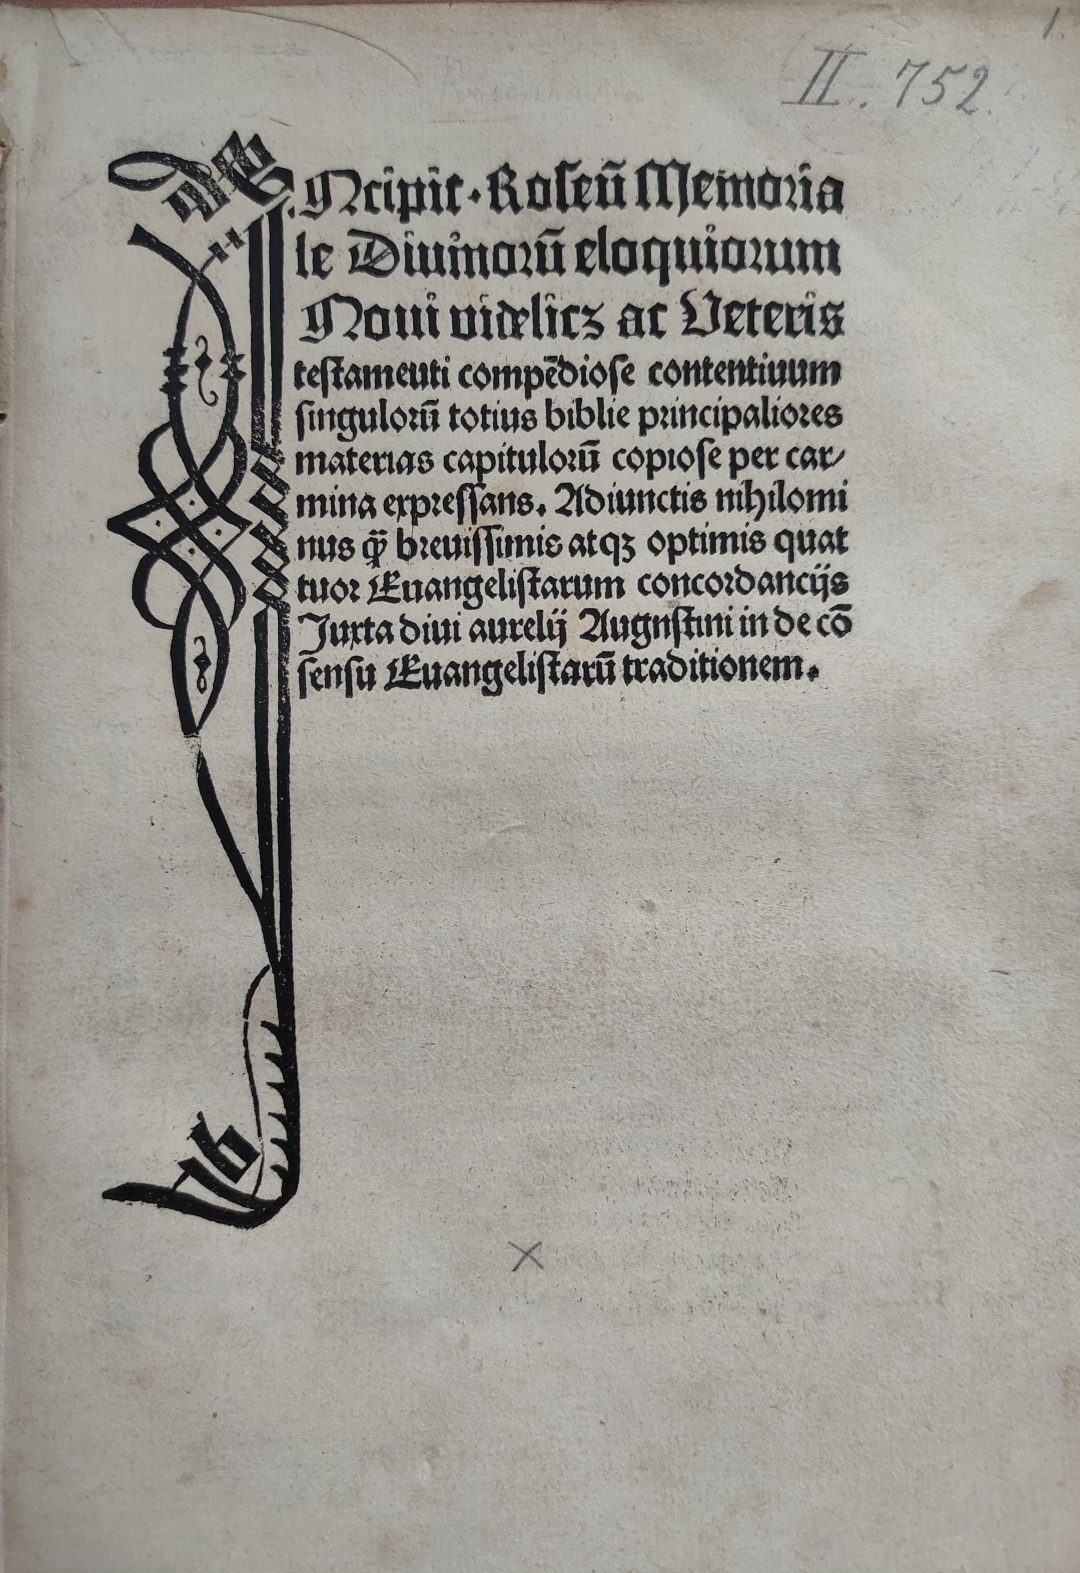 1.
II. 752.
INcipit. Roseū Memoria
le Diuinorū eloquiorum
Noui videlicꝫ ac Veteris
testamenti compēdiose contentiuum
singulorū totius biblie principaliores
materias capitulorū copiose per car/
mina expressans. Adiunctis nihilomi
nus q̄ꝫ breuissimis atqꝫ optimis quat
tuor Euangelistarum concordancijs
Juxta diui aurelij Augustini in de cō
sensu Euangelistarū traditionem.